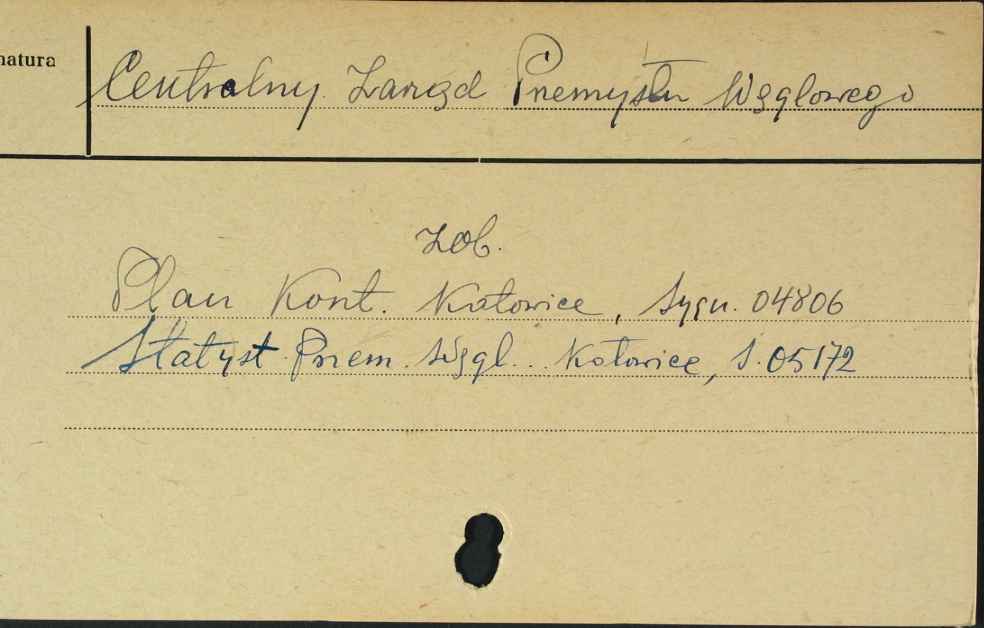 natura
Centralny Zarząd Przemysłu Węglowego
Zob.
Plan Kont. Katowice, Sygn. 04806
Statyst. Przem. Węgl. Katowice, S. 05172